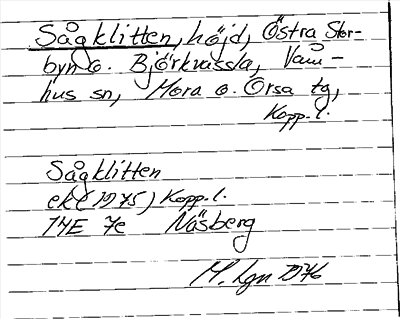 Sågklitten, höjd, Östra Stor-
byn o. Björkvassla, Våm-
hus sn, Mora o. Orsa tg,
Kopp.l.
Sågklitten
ek (1975) Kopp.l.
14E 7e Näsberg
M. Lgn 1976